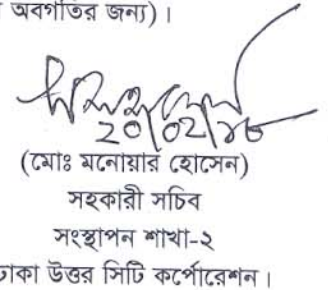 অবগতির জন্য)।
২০/০২/১৮
(মোঃ মনোয়ার হোসেন)
সহকারী সচিব
সংস্থাপন শাখা-২
ঢাকা উত্তর সিটি কর্পোরেশন।